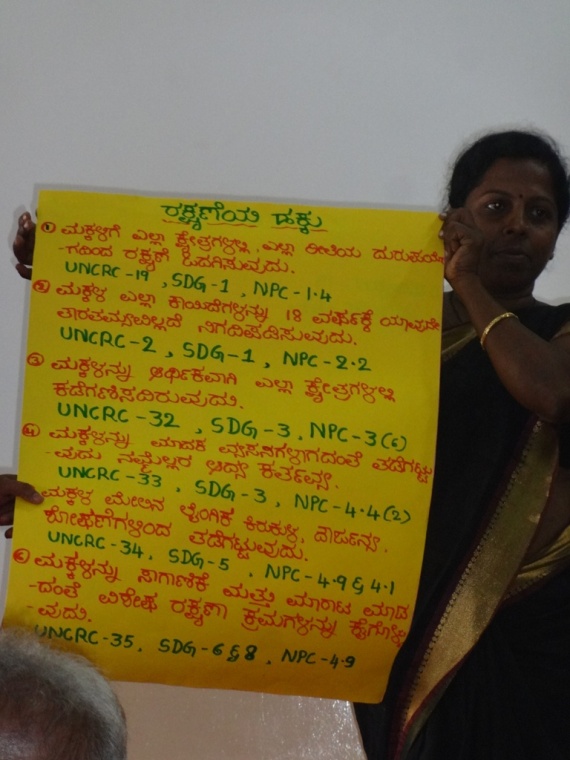 ರಕ್ಷಣೆಯ ಹಕ್ಕು
① ಮಕ್ಕಳಿಗೆ ಎಲ್ಲಾ ಕ್ಷೇತ್ರಗಳಲ್ಲಿ, ಎಲ್ಲಾ ರೀತಿಯ ದುರುಪಯೋ
-ಗದಿಂದ ರಕ್ಷಣೆ ಒದಗಿಸುವುದು.
UNCRC-19, SDG-1, NPC-1.4
② ಮಕ್ಕಳ ಎಲ್ಲಾ ಕಾಯಿದೆಗಳನ್ನು 18 ವರ್ಷಕ್ಕೆ ಯಾವುದೇ
ತಾರತಮ್ಯವಿಲ್ಲದೆ ನಿಗದಿಪಡಿಸುವುದು.
UNCRC-2, SDG-1, NPC-2.2
③ ಮಕ್ಕಳನ್ನು ಆರ್ಥಿಕವಾಗಿ ಎಲ್ಲಾ ಕ್ಷೇತ್ರಗಳಲ್ಲಿ
ಕಡೆಗಣಿಸದಿರುವುದು.
UNCRC-32, SDG-3, NPC-3(c)
④ ಮಕ್ಕಳನ್ನು ಮಾದಕ ವ್ಯಸನಗಳಾಗದಂತೆ ತಡೆಗಟ್ಟು
-ವುದು ನಮ್ಮೆಲ್ಲರ ಆದ್ಯ ಕರ್ತವ್ಯ.
UNCRC-33, SDG-3, NPC-4.4(2)
ಮಕ್ಕಳ ಮೇಲಿನ ಲೈಂಗಿಕ ಕಿರುಕುಳ, ದೌರ್ಜನ್ಯ,
ಶೋಷಣೆಗಳಿಂದ ತಡೆಗಟ್ಟುವುದು.
UNCRC-34, SDG-5, NPC-4.9 & 4.1
ಮಕ್ಕಳನ್ನು ಸಾಗಾಣಿಕೆ ಮತ್ತು ಮಾರಾಟ ಮಾಡ
-ದಂತೆ ವಿಶೇಷ ರಕ್ಷಣಾ ಕ್ರಮಗಳನ್ನು ಕೈಗೊಳ್ಳು
-ವುದು.
UNCRC-35, SDG-6 & 8, NPC-4.9